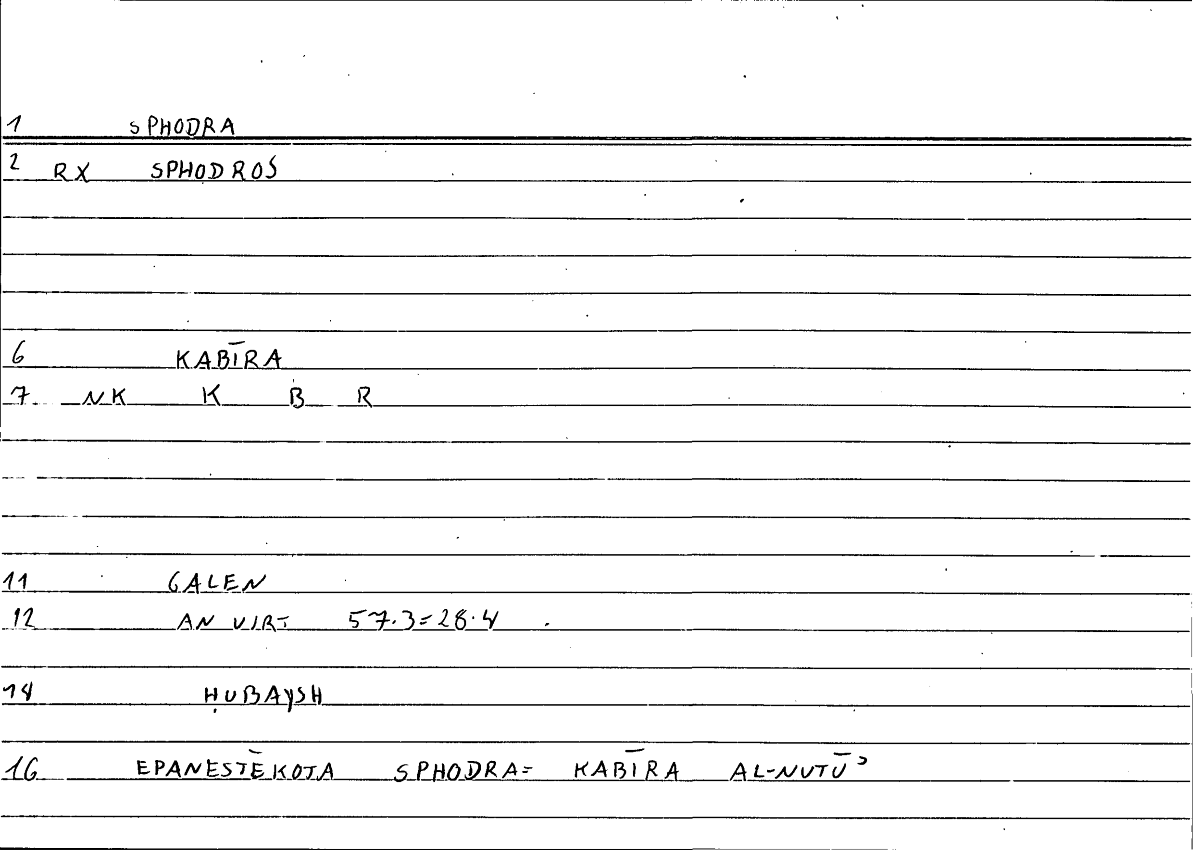 1 SPHODRA
2 RX SPHODROS
6 KABĪRA
7 NK K B R
11 GALEN
12 AN VIRT 57.3=28.4
14 ḤUBAYSH
16 EPANESTĒKOTA SPHODRA= KABĪRA AL-NUTŪʾ